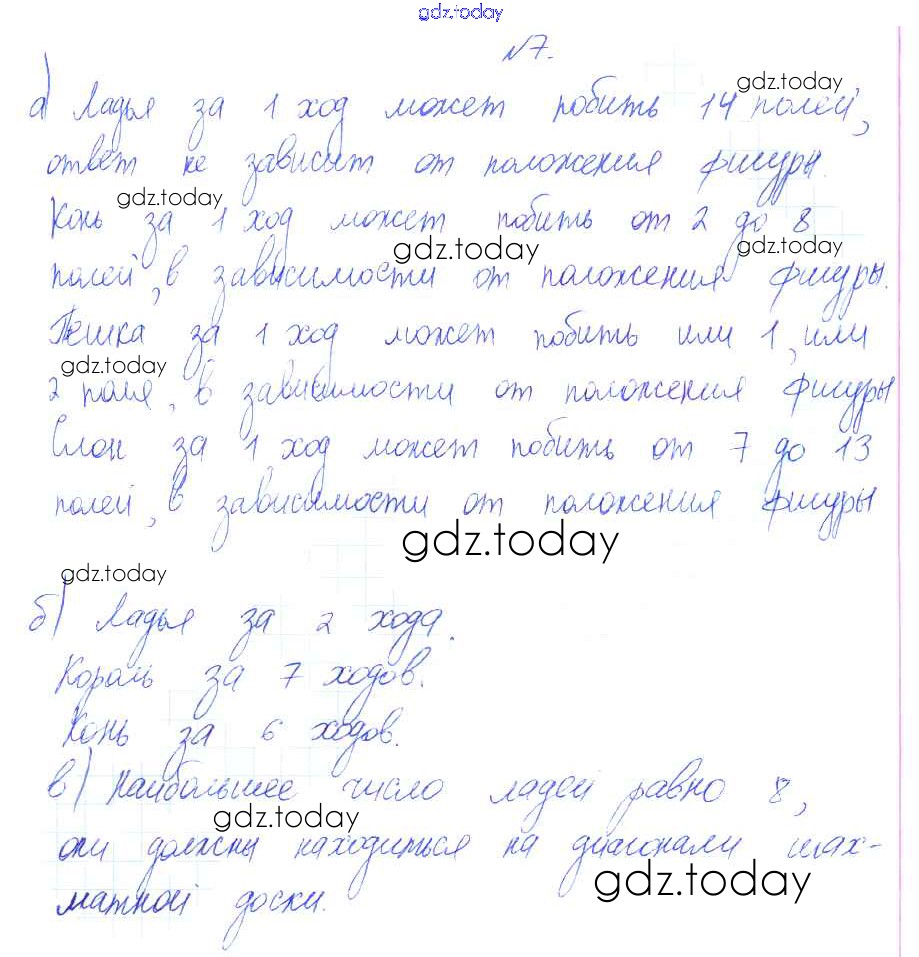 gdz.today
№7.
gdz.today
а) Ладья за 1 ход может побить 14 полей,
ответ не зависит от положения фигуры.
gdz.today
Конь за 1 ход может побить от 2 до 8
gdz.today gdz.today
полей, в зависимости от положения фигуры.
Пешка за 1 ход может побить или 1, или
gdz.today
2 поля, в зависимости от положения фигуры
Слон за 1 ход может побить от 7 до 13
полей, в зависимости от положения фигуры
gdz.today
gdz.today
б) Ладья за 2 хода.
Король за 7 ходов.
Конь за 6 ходов.
в) Наибольшее число ладей равно 8,
gdz.today
они должны находиться на диагонали шах-
gdz.today
матной доски.